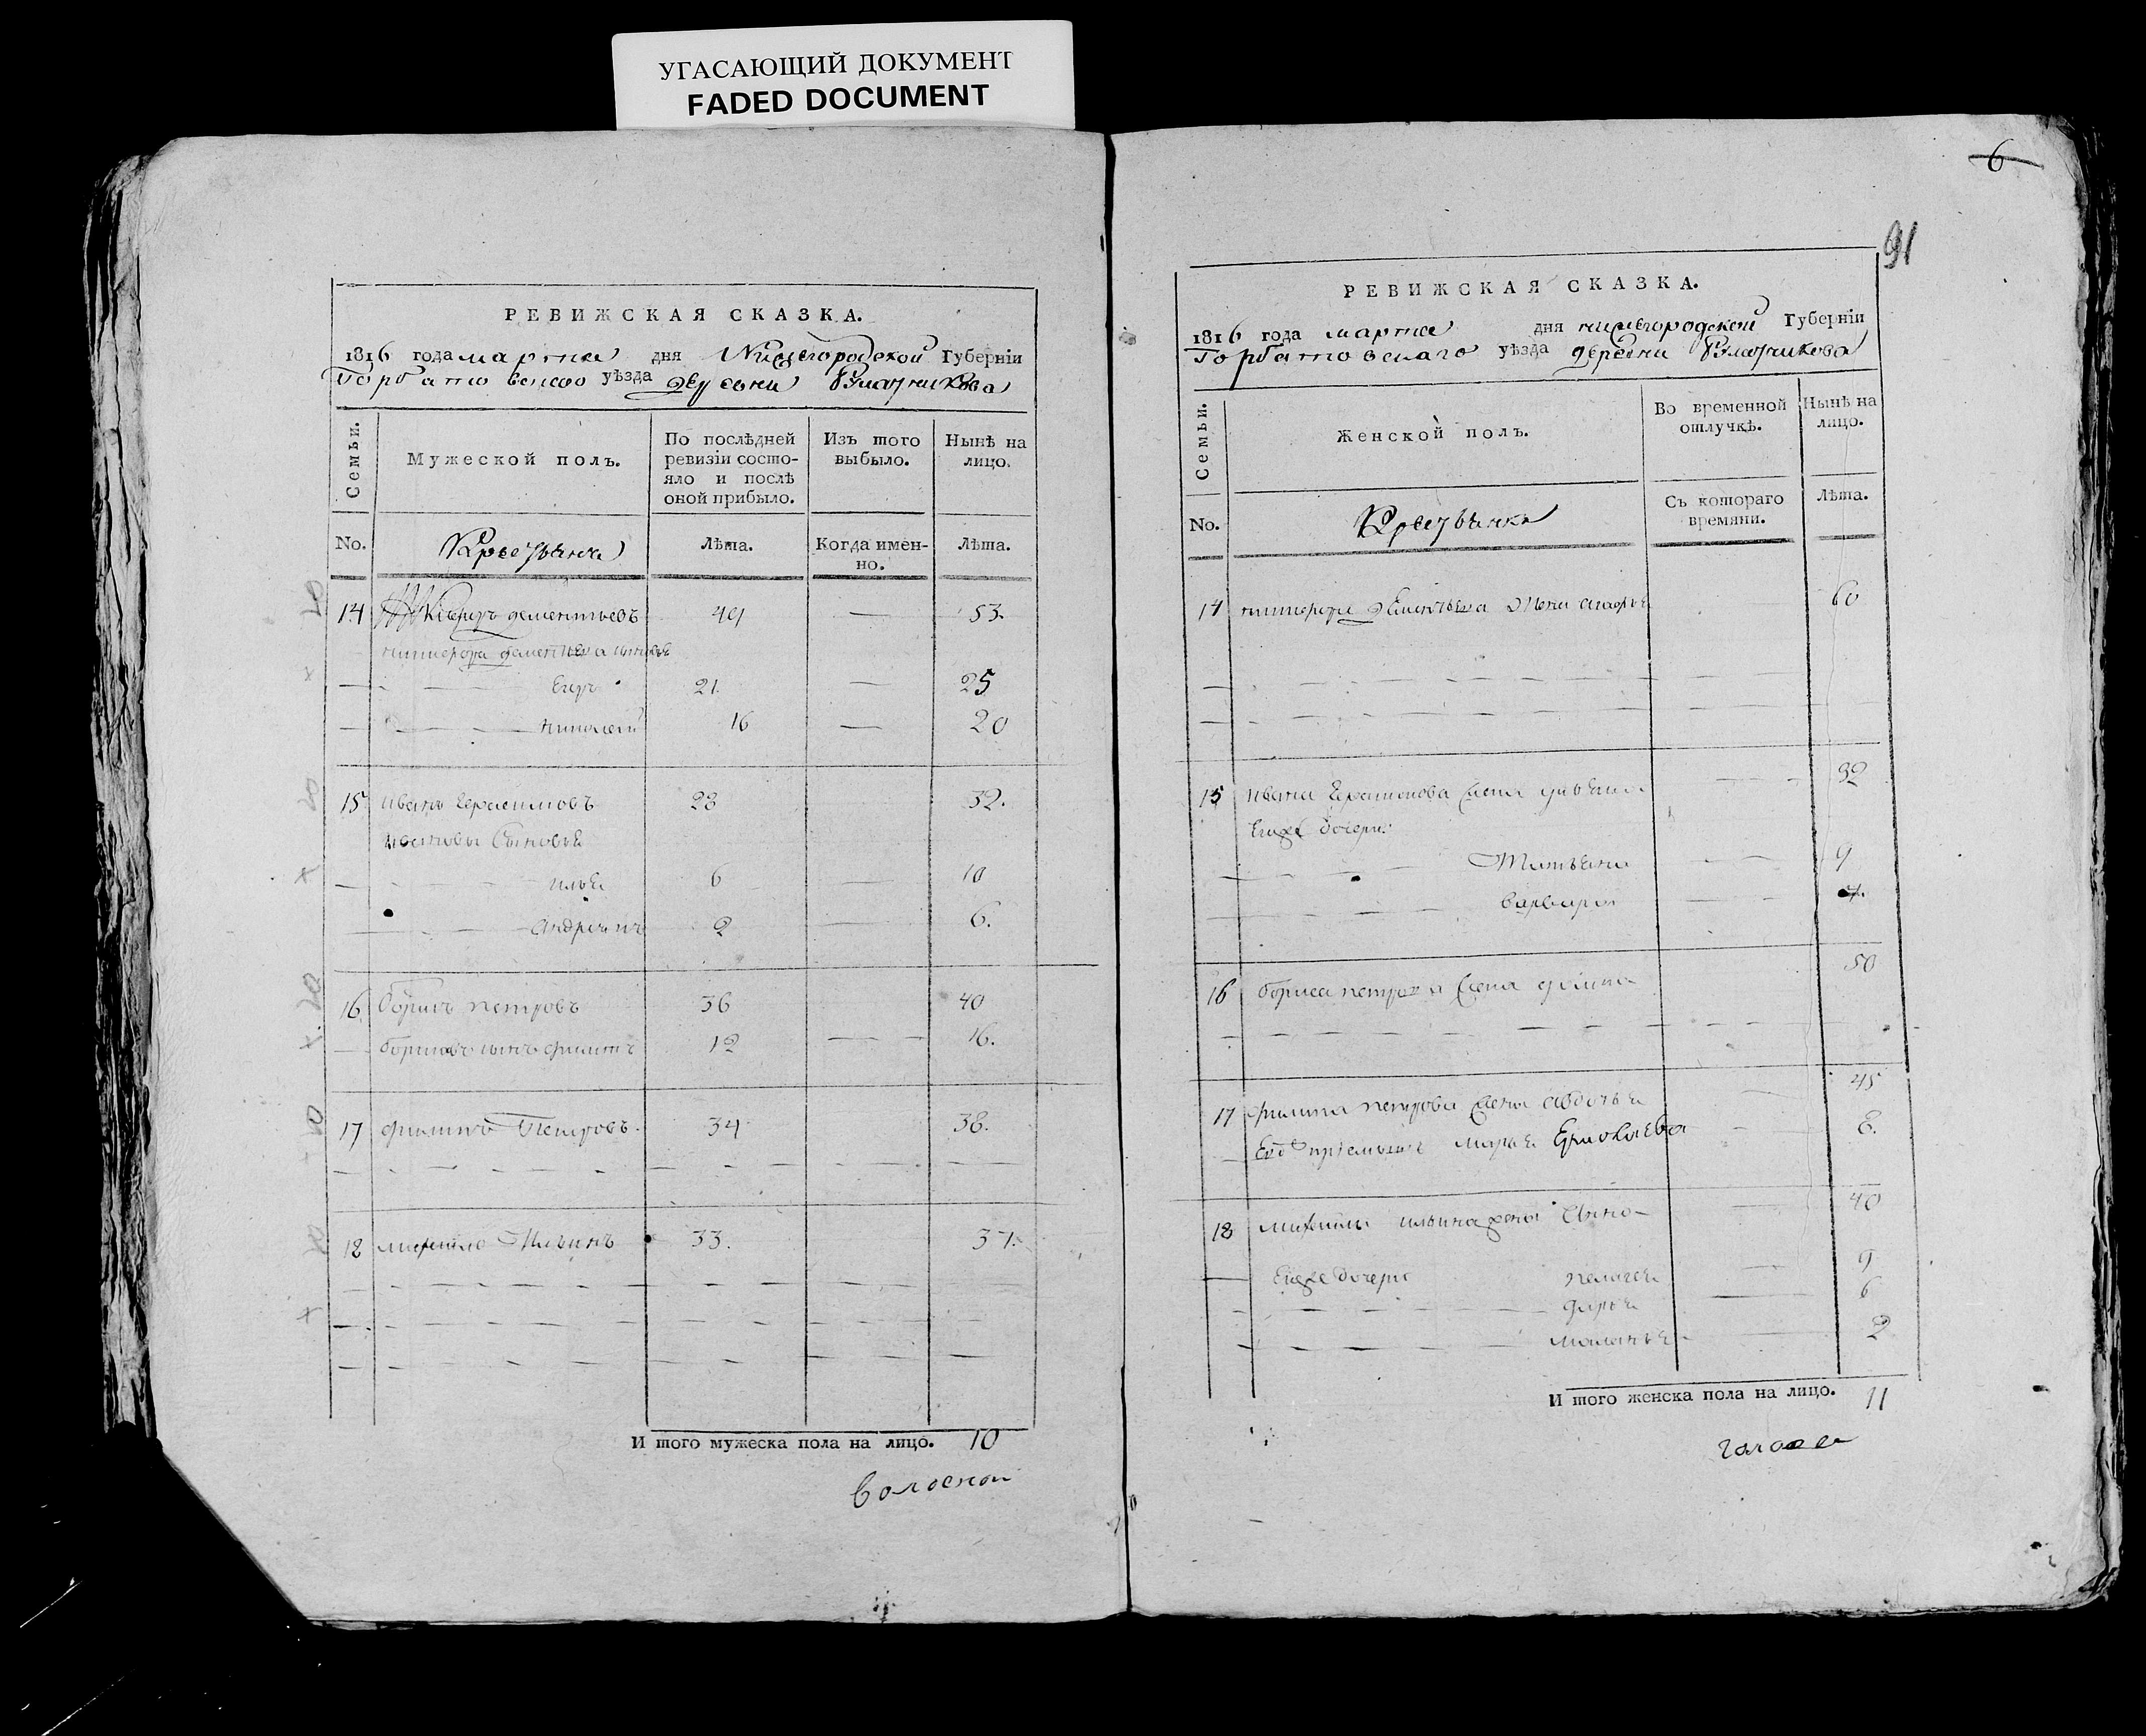 УГАСАЮЩИЙ ДОКУМЕНТ
FADED DOCUMENT
РЕВИЖСКАЯ СКАЗКА.
1816 года марта дня Нижегородской Губерніи
Горбатовскаго уѣзда деревни
Семьи.
Мужеской полъ.
По послѣдней ревизіи состо-
яло и послѣ оной прибыло.
Изъ того выбыло.
Нынѣ на лицо.
No.
Крестьяне
Лѣта.
Когда имен-
но.
Лѣта.
14 дементьевъ 49 — 53.
дементьева
Егоръ 21. — 25
николай 16 — 20
15 иванъ Герасимовъ 28 32.
ивановы сыновья
илья 6 — 10
андреянъ 2 — 6.
16 борисъ петровъ 36 40
борисовъ сынъ филипъ 12 — 16.
17 филипъ Петровъ 34 38.
18 михайло Ильинъ 33. 37.
И того мужеска пола на лицо. 10
Волоской
6
91
РЕВИЖСКАЯ СКАЗКА.
1816 года марта дня нижегородской Губерніи
Горбатовскаго уѣзда деревни
Семьи.
Женской полъ.
Во временной отлучкѣ.
Нынѣ на лицо.
No.
Крестьянки
Съ котораго времяни.
Лѣта.
14 дементьева жена 60
15 ивана Герасимова жена 32
Ихже дочери:
Татьяна 9
варвара 4.
16 бориса петрова жена 50
17 филипа петрова жена авдотья 45
Ево марья Ермолаева 8.
18 михайлы ильина жена Анна 40
Ихже дочери пелагея 9
дарья 6
маланья 2
И того женска пола на лицо. 11
голова